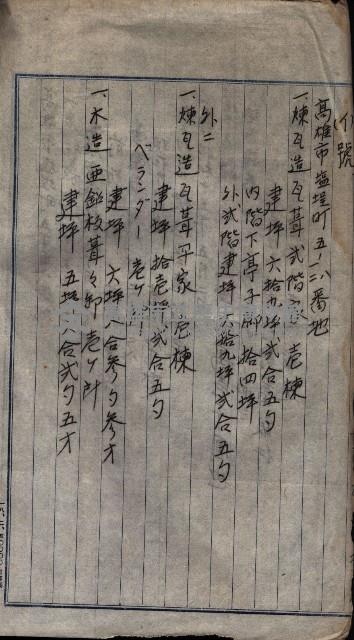 (イ)號
高雄市塩埕町五ノ二八番地
一、煉瓦造瓦葺弍階家 壱棟
建坪 六拾九坪弍合五勺
内階下亭子脚 拾四坪
外弍階建坪 六拾九坪弍合五勺
外ニ
一、煉瓦造瓦葺平家 壱棟
建坪 拾壱坪弍合五勺
ベランダー 壱ヶ所
建坪 六坪八合参勺参才
一、木造亜鉛板葺 卸 壱ヶ所
建坪 五坪六合弍勺五才